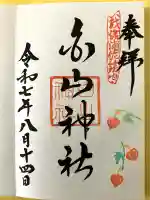 奉拝
白山神社
令和七年八月十四日